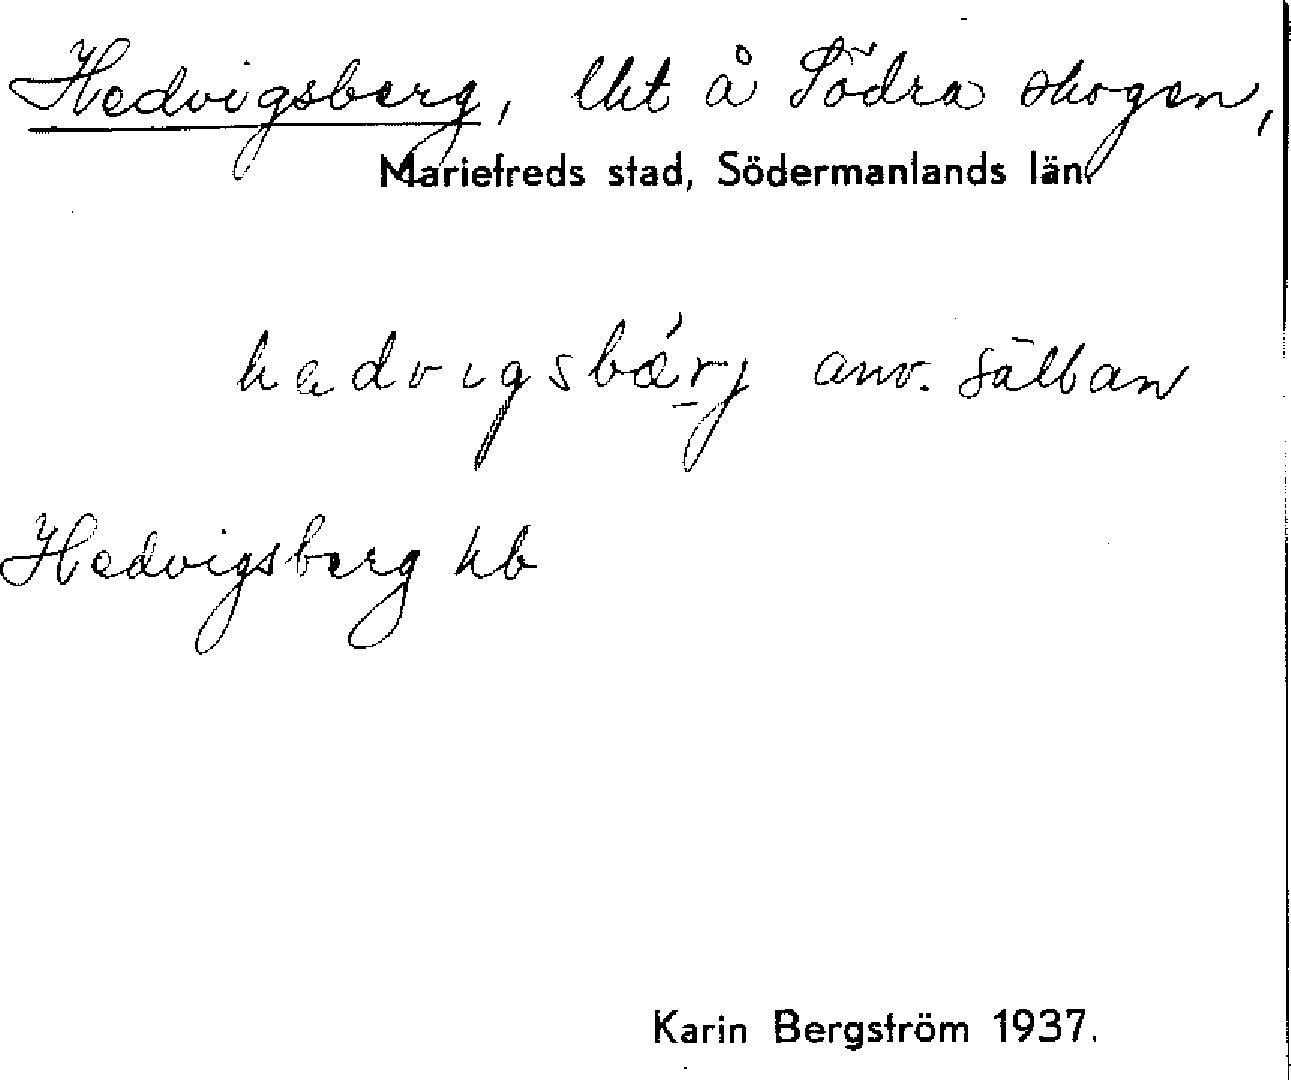 Hedvigsberg, lht å Södra skogen,
Mariefreds stad, Södermanlands län.
hedvigsbærj anv. sällan
Hedvigsberg kb
Karin Bergström 1937.